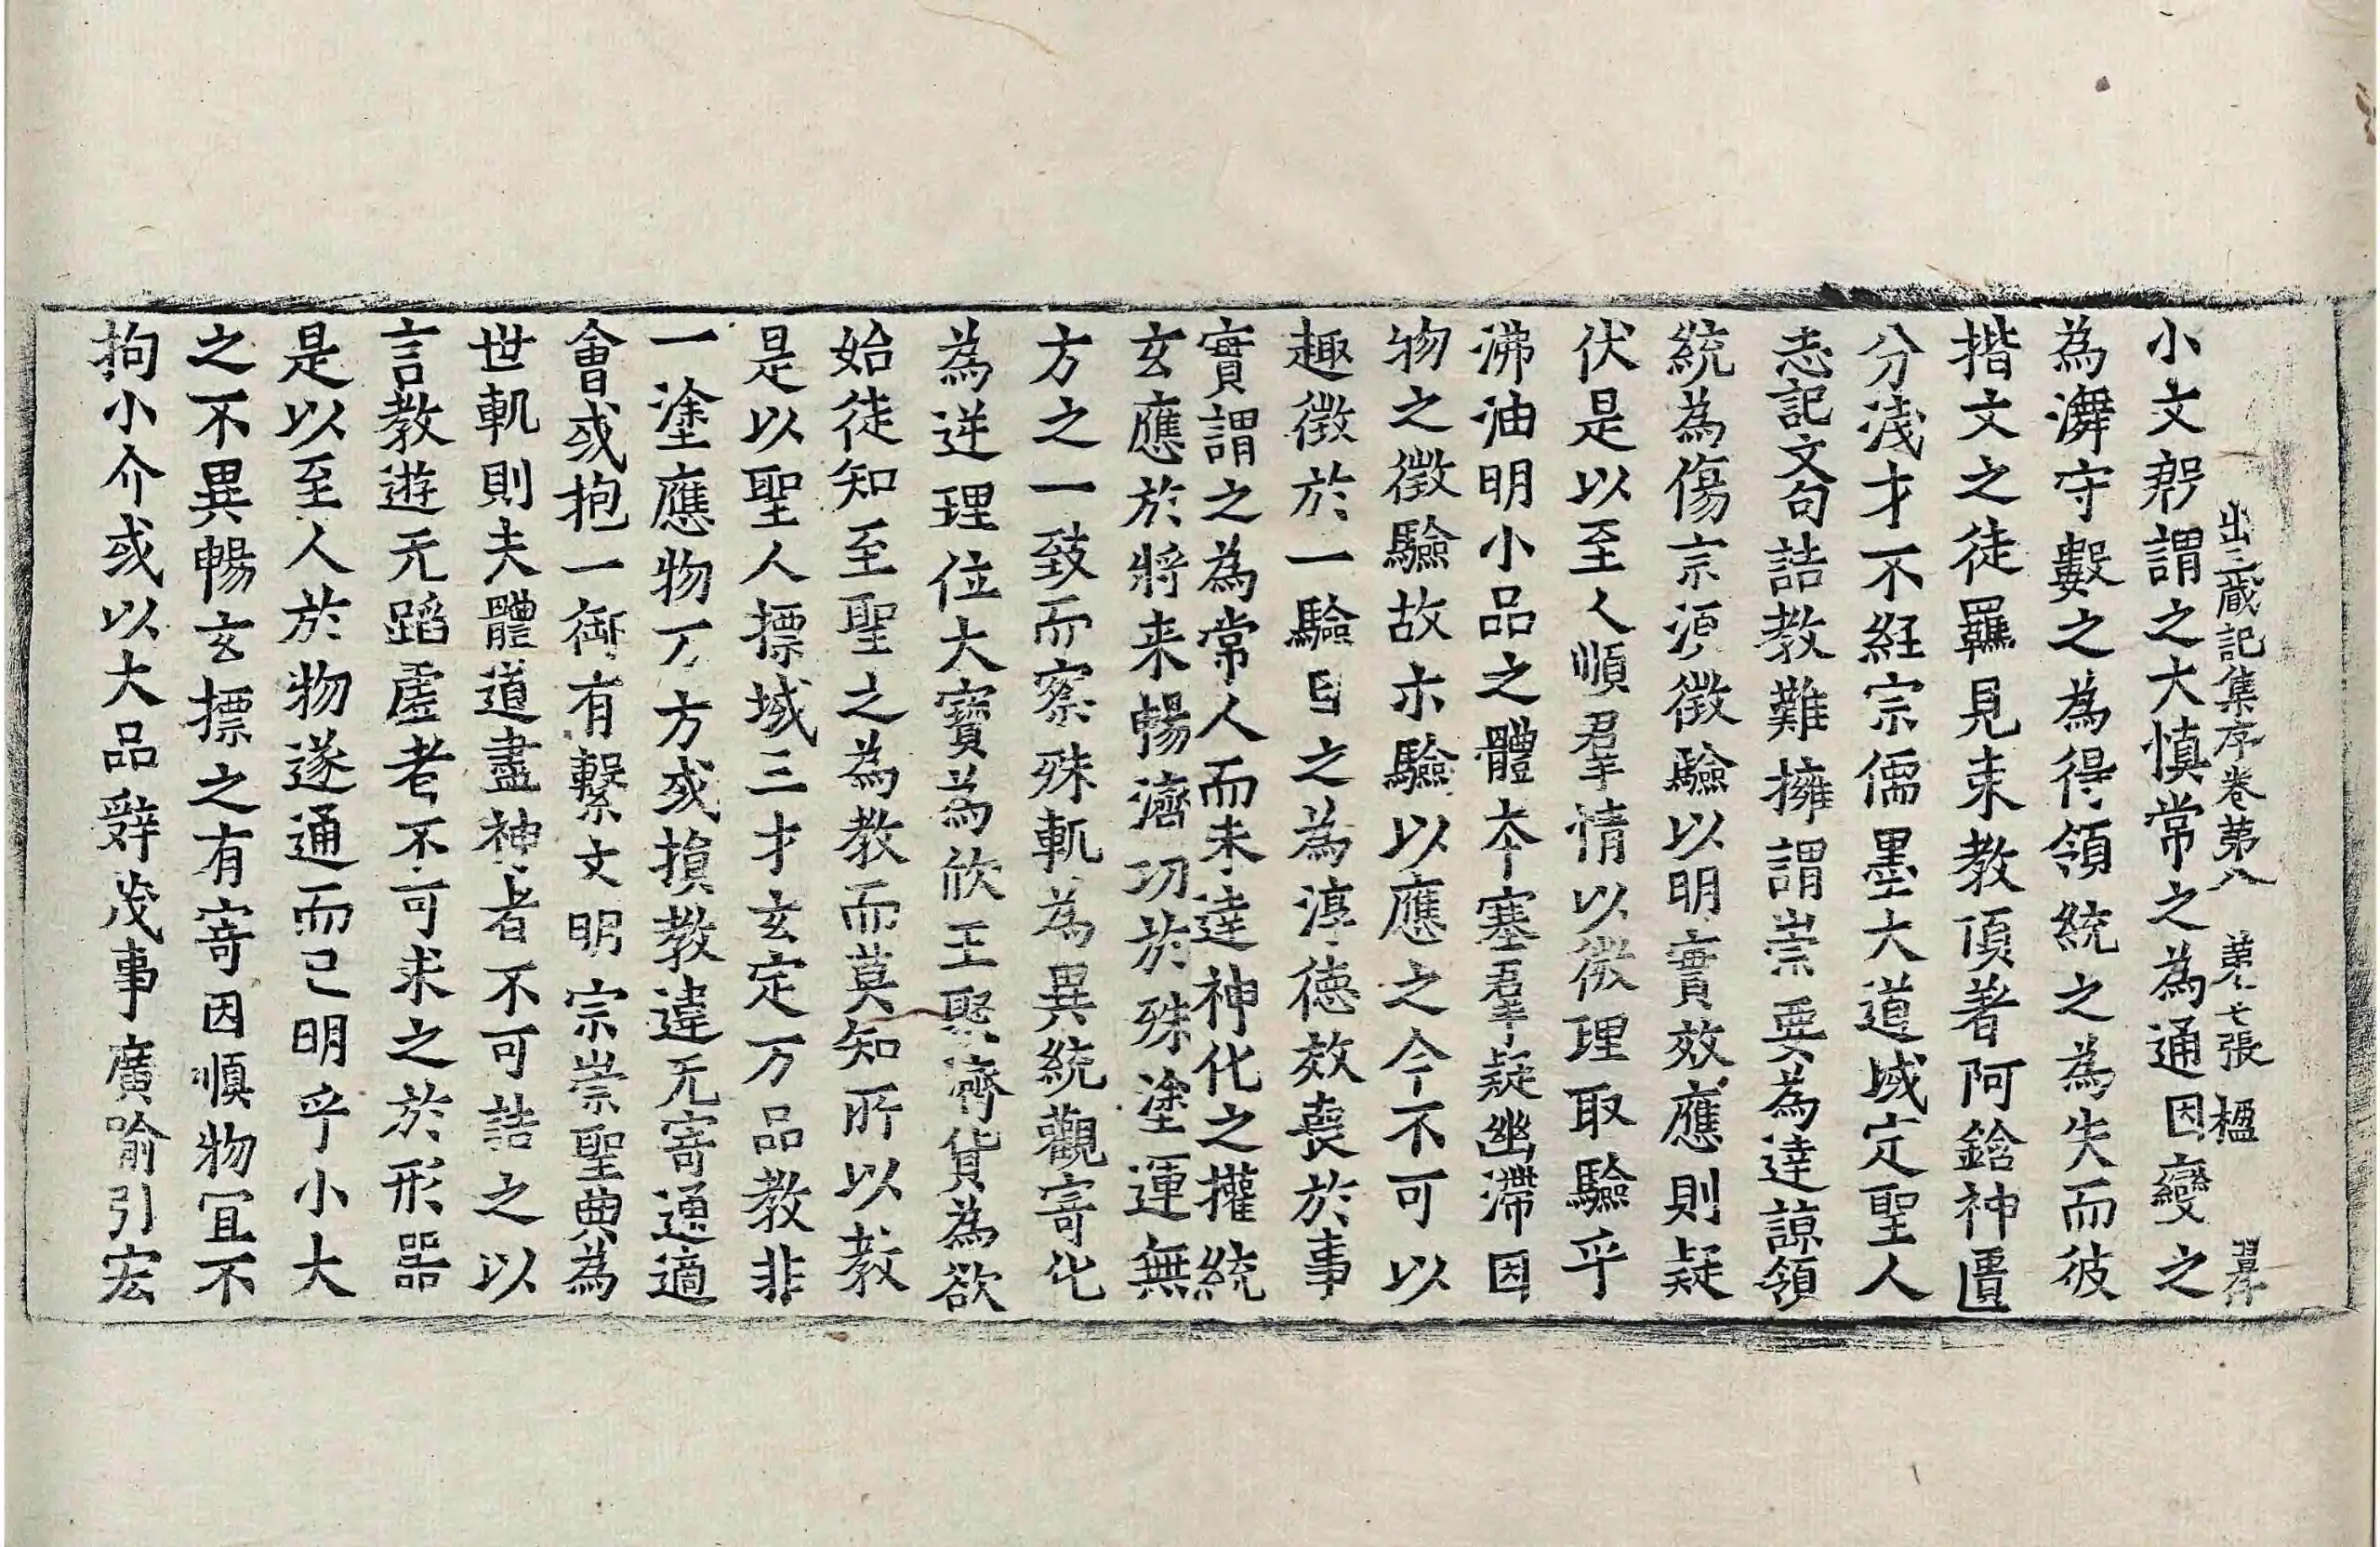 出三蔵記集序卷第八 第七張 楹
小文躬謂之大慎常之為通因變之
為澣守數之為得領統之為失而彼
揩文之徒羈見束教頂著阿鋡神匱
分淺才不經宗儒墨大道域定聖人
志記文句詰教難擁謂崇要為達諒領
統為傷宗須徵驗以明實效應則疑
伏是以至人順羣情以徴理取驗乎
沸油明小品之體夲塞羣疑幽滯因
物之徵驗故亦驗以應之今不可以
趣徵於一驗目之為淳德效喪於事
實謂之為常人而未達神化之權統
玄應於將来暢濟功於殊塗運無
方之一致而察殊軌為異統觀寄化
為逆理位大寶為欣王聚濟貨為欲
始徒知至聖之為教而莫知所以教
是以聖人摽域三才玄定万品教非
一塗應物万方或損教違无寄通適
會或抱一御有繫文明宗崇聖典為
世軌則夫體道盡神者不可詰之以
言教遊无蹈虛者不可求之於形器
是以至人於物遂通而已明乎小大
之不異暢玄摽之有寄因順物冝不
拘小介或以大品辤茂事廣喻引宏